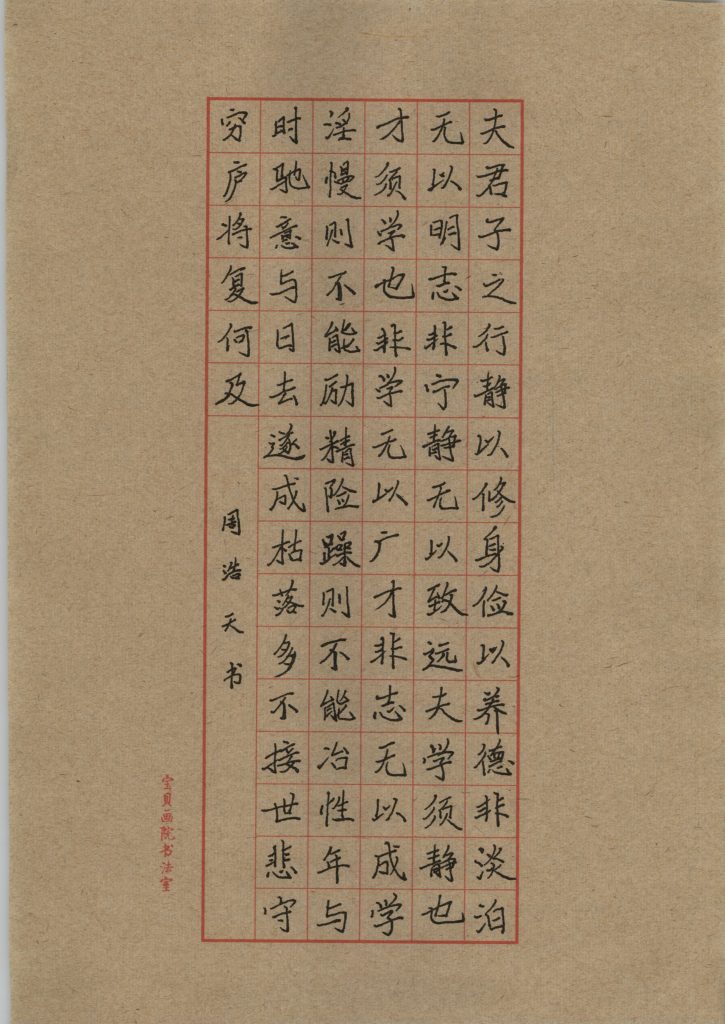 夫君子之行静以修身俭以养德非淡泊
无以明志非宁静无以致远夫学须静也
才须学也非学无以广才非志无以成学
淫慢则不能励精险躁则不能冶性年与
时驰意与日去遂成枯落多不接世悲守
穷庐将复何及
周浩天书
宝贝画院书法室